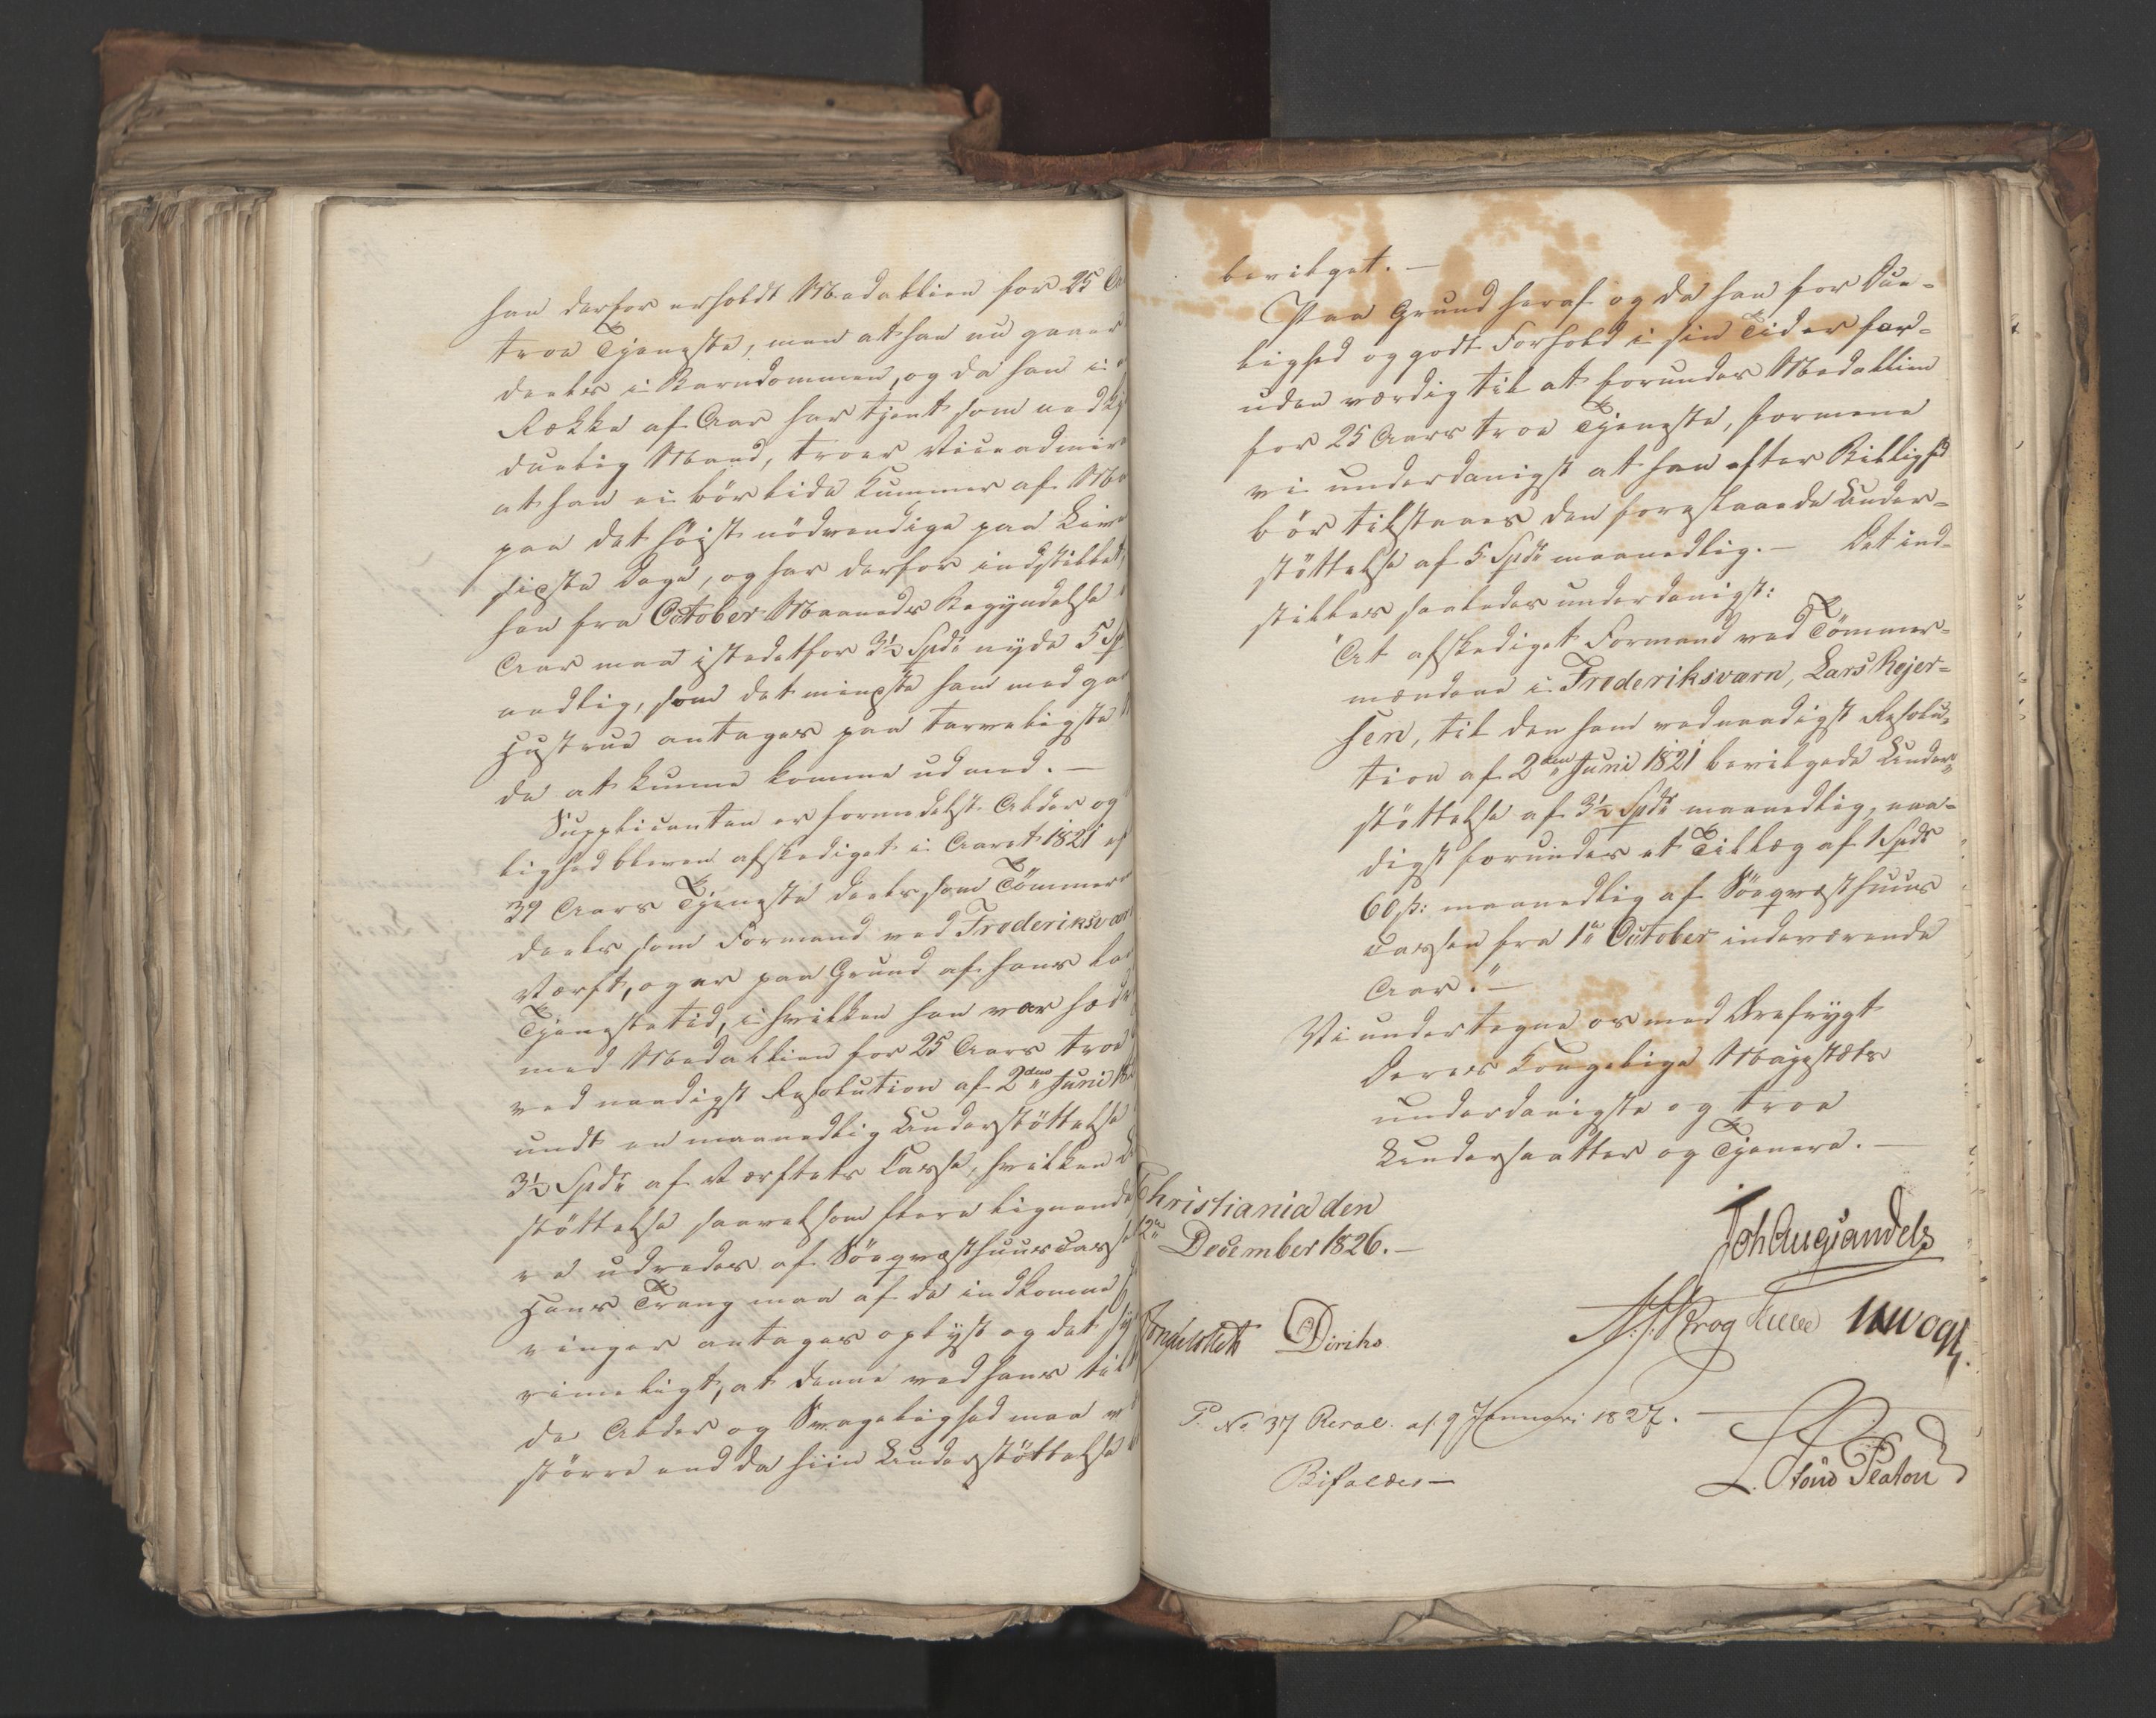 han derfor erholdt Medaillien for 25 Aa
troe Tjeneste, men at han nu gaaer
deels i Barndommen, og da han i
Række af Aar har tjent som
duelig Mand, troer Viceadmir
at han ei bör lide Kummer af Ma
paa det höist nödvendige paa Livs
sidste Dage, og har derfor indstillet,
han fra October Maaneds Begyndelse
Aar maa istedetfor 3½ Spdr nyde 5 Sp
nedlig, som det mindste han med ga
Hustrue antages paa tarveligste
de at kunne komme ud med. —
Supplicanten er formedelst Alder og
lighed bleven afskediget i Aaret 1821 ef
39 Aars Tjeneste deels som Tömmer
deels som Formand ved Frederiksvær
Værft, og er paa Grund af hans la
Tjenestetid, i hvilken han var hæd
med Medaillien for 25 Aars troe
ved naadigst Resolution af 2den Juni 18
undt en maanedlig Understöttelse
3½ Spdr af Værftets Casse, hvilken
stöttelse saavelsom flere lignende
re udredes af Söeqvæsthuuscasse
Hans Trang maa af de indkomne
ringer antages oplyst og det sy
rimeligt, at denne ved hans til
de Alder og Svagelighed maa v
större end da hiin Understöttelse
bevilget. —
Paa Grund heraf og da han for Due-
lighed og godt Forhold i sin Tid er fær-
uden værdig til at forundes Medaillien
for 25 Aars troe Tjeneste, formene
vi underdanigst at han efter Billighed
bör tilstaaes den foreslaaede Under-
stöttelse af 5 Spdr maanedlig. — Det ind-
stilles saaledes underdanigst:
"At afskediget Formand ved Tömmer-
mændene i Frederiksværn, Lars Rejer-
sen, til den ham ved naadigst Resolu-
tion af 2den Juni 1821 bevilgede Under-
stöttelse af 3½ Spdr maanedlig, naa-
digst forundes et Tillæg af 1 Spdr
60 ß: maanedlig af Söeqvæsthuus
Cassen fra 1ste October indeværende
Aar." —
Vi undertegne os med Ærefrygt
Deres Kongelige Majestæts
underdanigste og troe
Undersaatter og Tjenere. —
Christiania den
12te December 1826. —
Joh Aug Sandels
Fonsesbeck Diriks
Krog Collett JHVogt
P. No 37 Resol. af 9 Januari 1827. —
Bifalles —
L. Stoud Platou